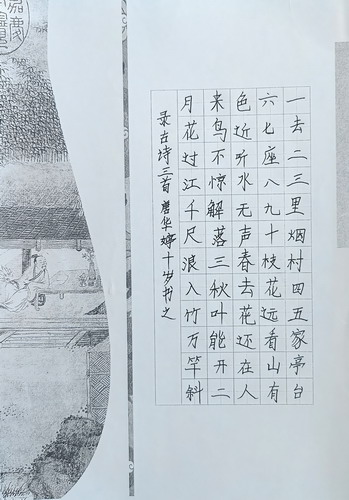 一去二三里烟村四五家亭台
六七座八九十枝花远看山有
色近听水无声春去花还在人
来鸟不惊解落三秋叶能开二
月花过江千尺浪入竹万竿斜
录古诗三首 唐华婷十岁书之